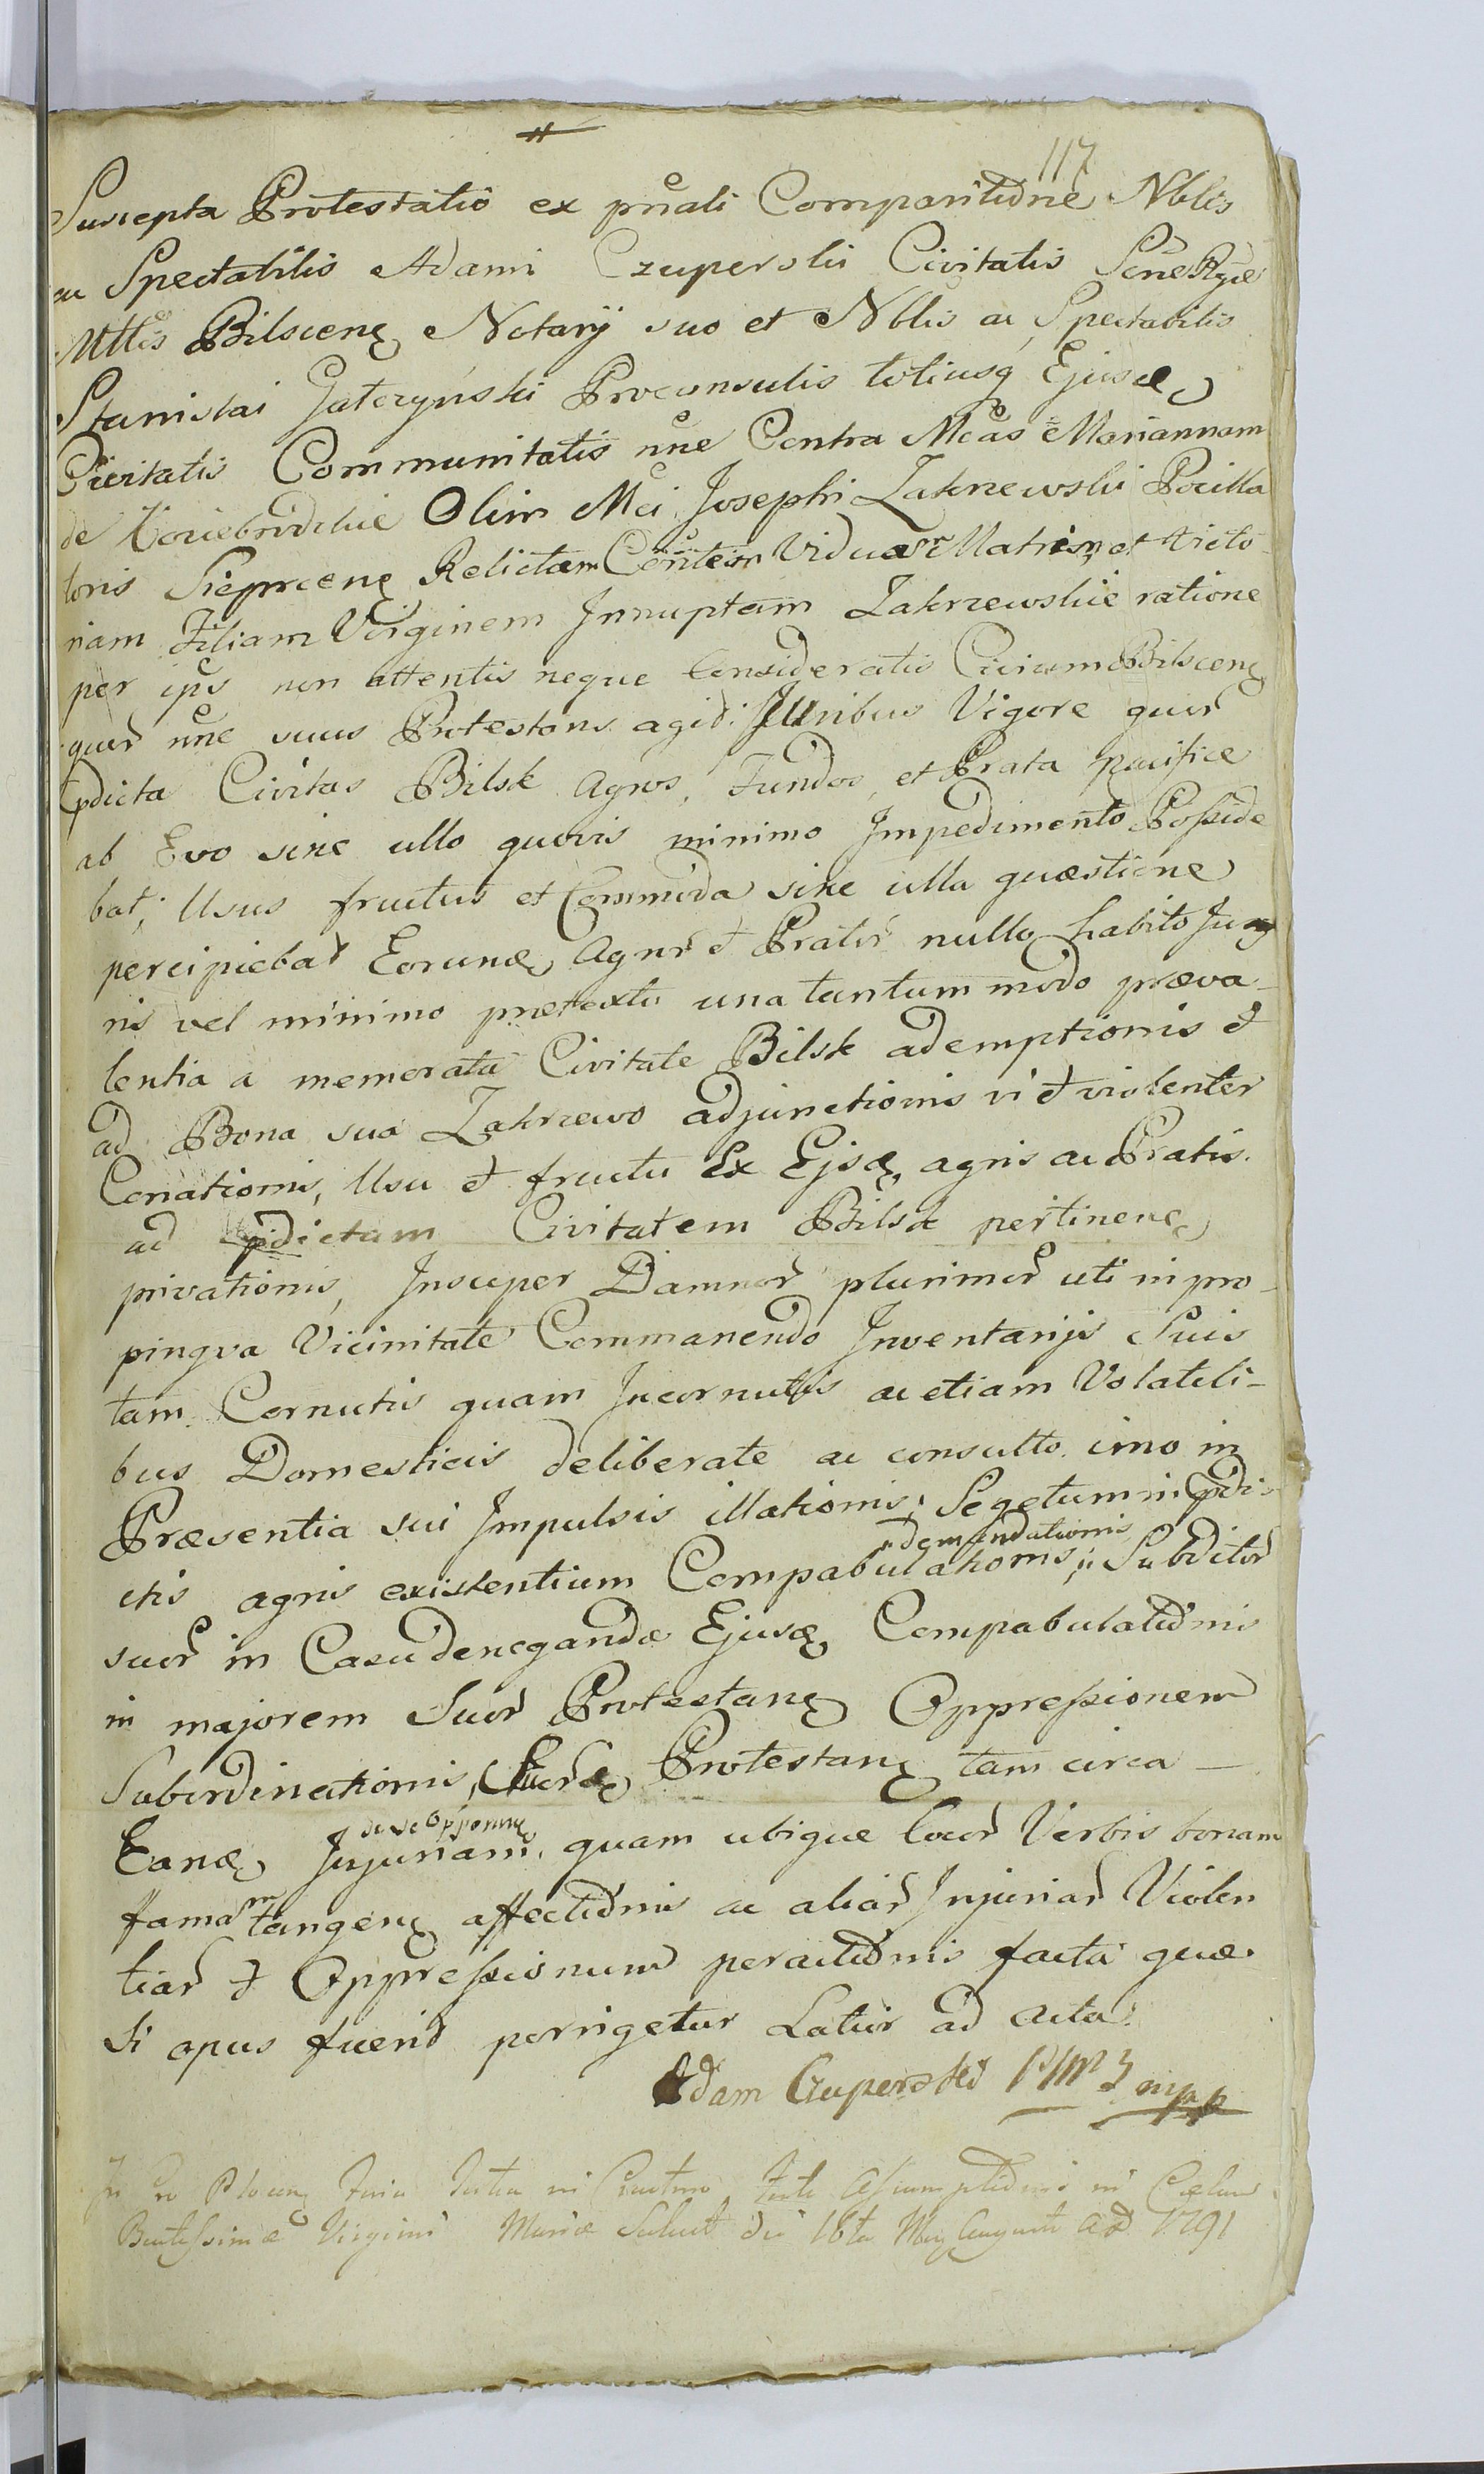 117
Suscepta Protestatio ex pnali Comparitione Nblis
ac Spectabilis Adami Czuperski Civitatis Sae Rgiae
Mttis Bilscen Notarij suo et Nblis ac Spectabilis
Stanislai Gatczynski Proconsulis totiusq Ejusd
Civitatis Communitatis nne Contra Mcas Mariannam
de Olim Mci Josephi Zakrzewski Pocilla
toris Sieprcen Relictam Viduam Matrem et Victo
riam Filiam Virginem Innuptam Zakrzewskie ratione
per ips non attentis neque Consideratis Civium Bilscen
quor nne suus Protestans agit Juribus Vigore quor
pdicta Civitas Bilsk Agros, Fundos, et Prata pacifice
ab Evo sine ullo quovis minimo Impedimento Posside
bat, Usus fructus et Commoda sine ulla quæstione
percipiebat Eorund Agror et Prator nullo habito Ju
ris vel minimo prætextu una tantum modo præva-
lentia a memorata Civitate Bilsk ademptionis et
ad Bona sua Zakrzewo adjunctionis vi et violenter
Conationis, Usu et fructu Ex Ejsd agris ac Pratis
ad pdictam Civitatem Bilsk pertinen
privationis, Insuper Damnor plurimor uti in pro-
pinqva Vicinitate Commanendo Inventarijs Suis
tam Cornutis quam Incornutis ac etiam Volatili-
bus Domesticis deliberate ac consulto imo in
Præsentia sui Impulsis illationis, Segetum in pdi-
ctis agris existentium Compabulationis, ademandationis Subditor
suor in Casu denegandæ Ejusd Compabulationis
in majorem Suor Protestan Oppressionem
Subordinationis, Protestan tam circa -
Eand Injuriam de se Opponen quam ubique locor Verbis bonam
famam tangen affectionis ac aliar Injuriar Violen
tiar et Oppressionum peractionis facta quæ
si opus fuerit porrigetur Latior ad Acta
Adam Czuperski mpp
in Crastino Festi Assumptionis in Cælum
Beatissimæ Virginis Mariæ die 16ta Augusti AD 1791